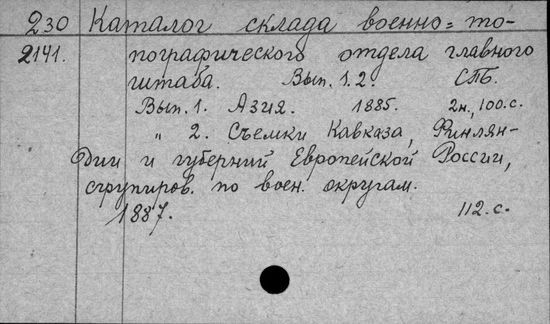 230 Каталог склада военно=то-
2141. пографического отдела главного
штаба. Вып. 1. 2. СПБ.
Вып. 1. Азия. 1885. 2н., 100.с.
„ 2. Съемки Кавказа, Финлян-
дии и губерний Европейской России,
сгрупиров. по воен. округам.
1887. 112.с.